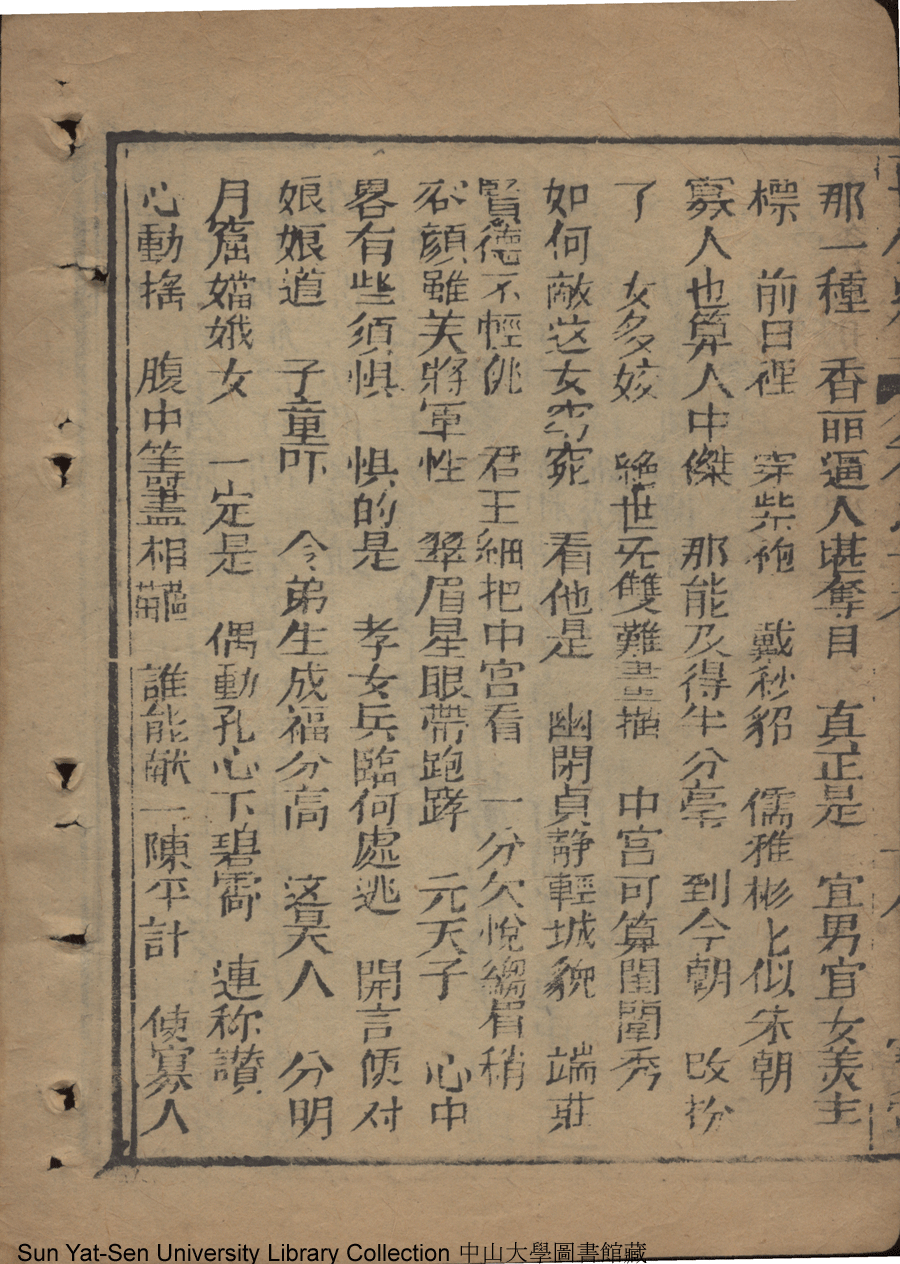 那一種　香丽逼人堪奪目　真正是　宜男宜女美丰
標　前日裡　穿紫袍　戴秒貂　儒雅彬匕似宋朝
寡人也算人中傑　那能及得半分毫　到今朝　改扮
了　女多姣　絶世无雙難畫描　中宮可算閨闈秀
如何敵这女窈窕　看他是　幽閑貞静輕城貌　端莊
賢德不輕佻　君王細把中宮看　一分欠悅縐眉稍
容顔雖美將軍性　翠眉星眼帶跑哮　元天子　心中
畧有些須惧　惧的是　孝女兵臨何處逃　開言便对
娘娘道　子童吓　令弟生成福分高　这美人　分明
月窟嫦娥女　一定是　偶動孔心下碧霄　連称讃
心動搖　腹中筭盡相　誰能献一陳平計　使寡人
Sun Yat-Sen University Library Collection 中山大學圖書館藏